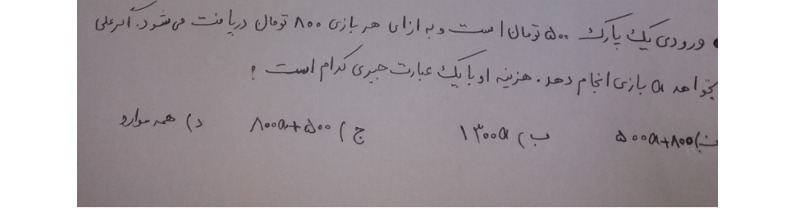 ورودی یک پارک ۵۰۰ تومان است و به ازای هر بازی ۸۰۰ تومان دریافت می‌شود. اگر علی
بخواهد a بازی انجام دهد. هزینه او با یک عبارت جبری کدام است ؟
الف) ۵۰۰a+۸۰۰ ب) ۱۳۰۰a ج) ۸۰۰a+۵۰۰ د) همه موارد